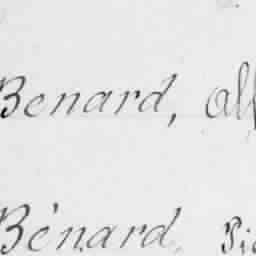 Benard, All
Bénard, Pie